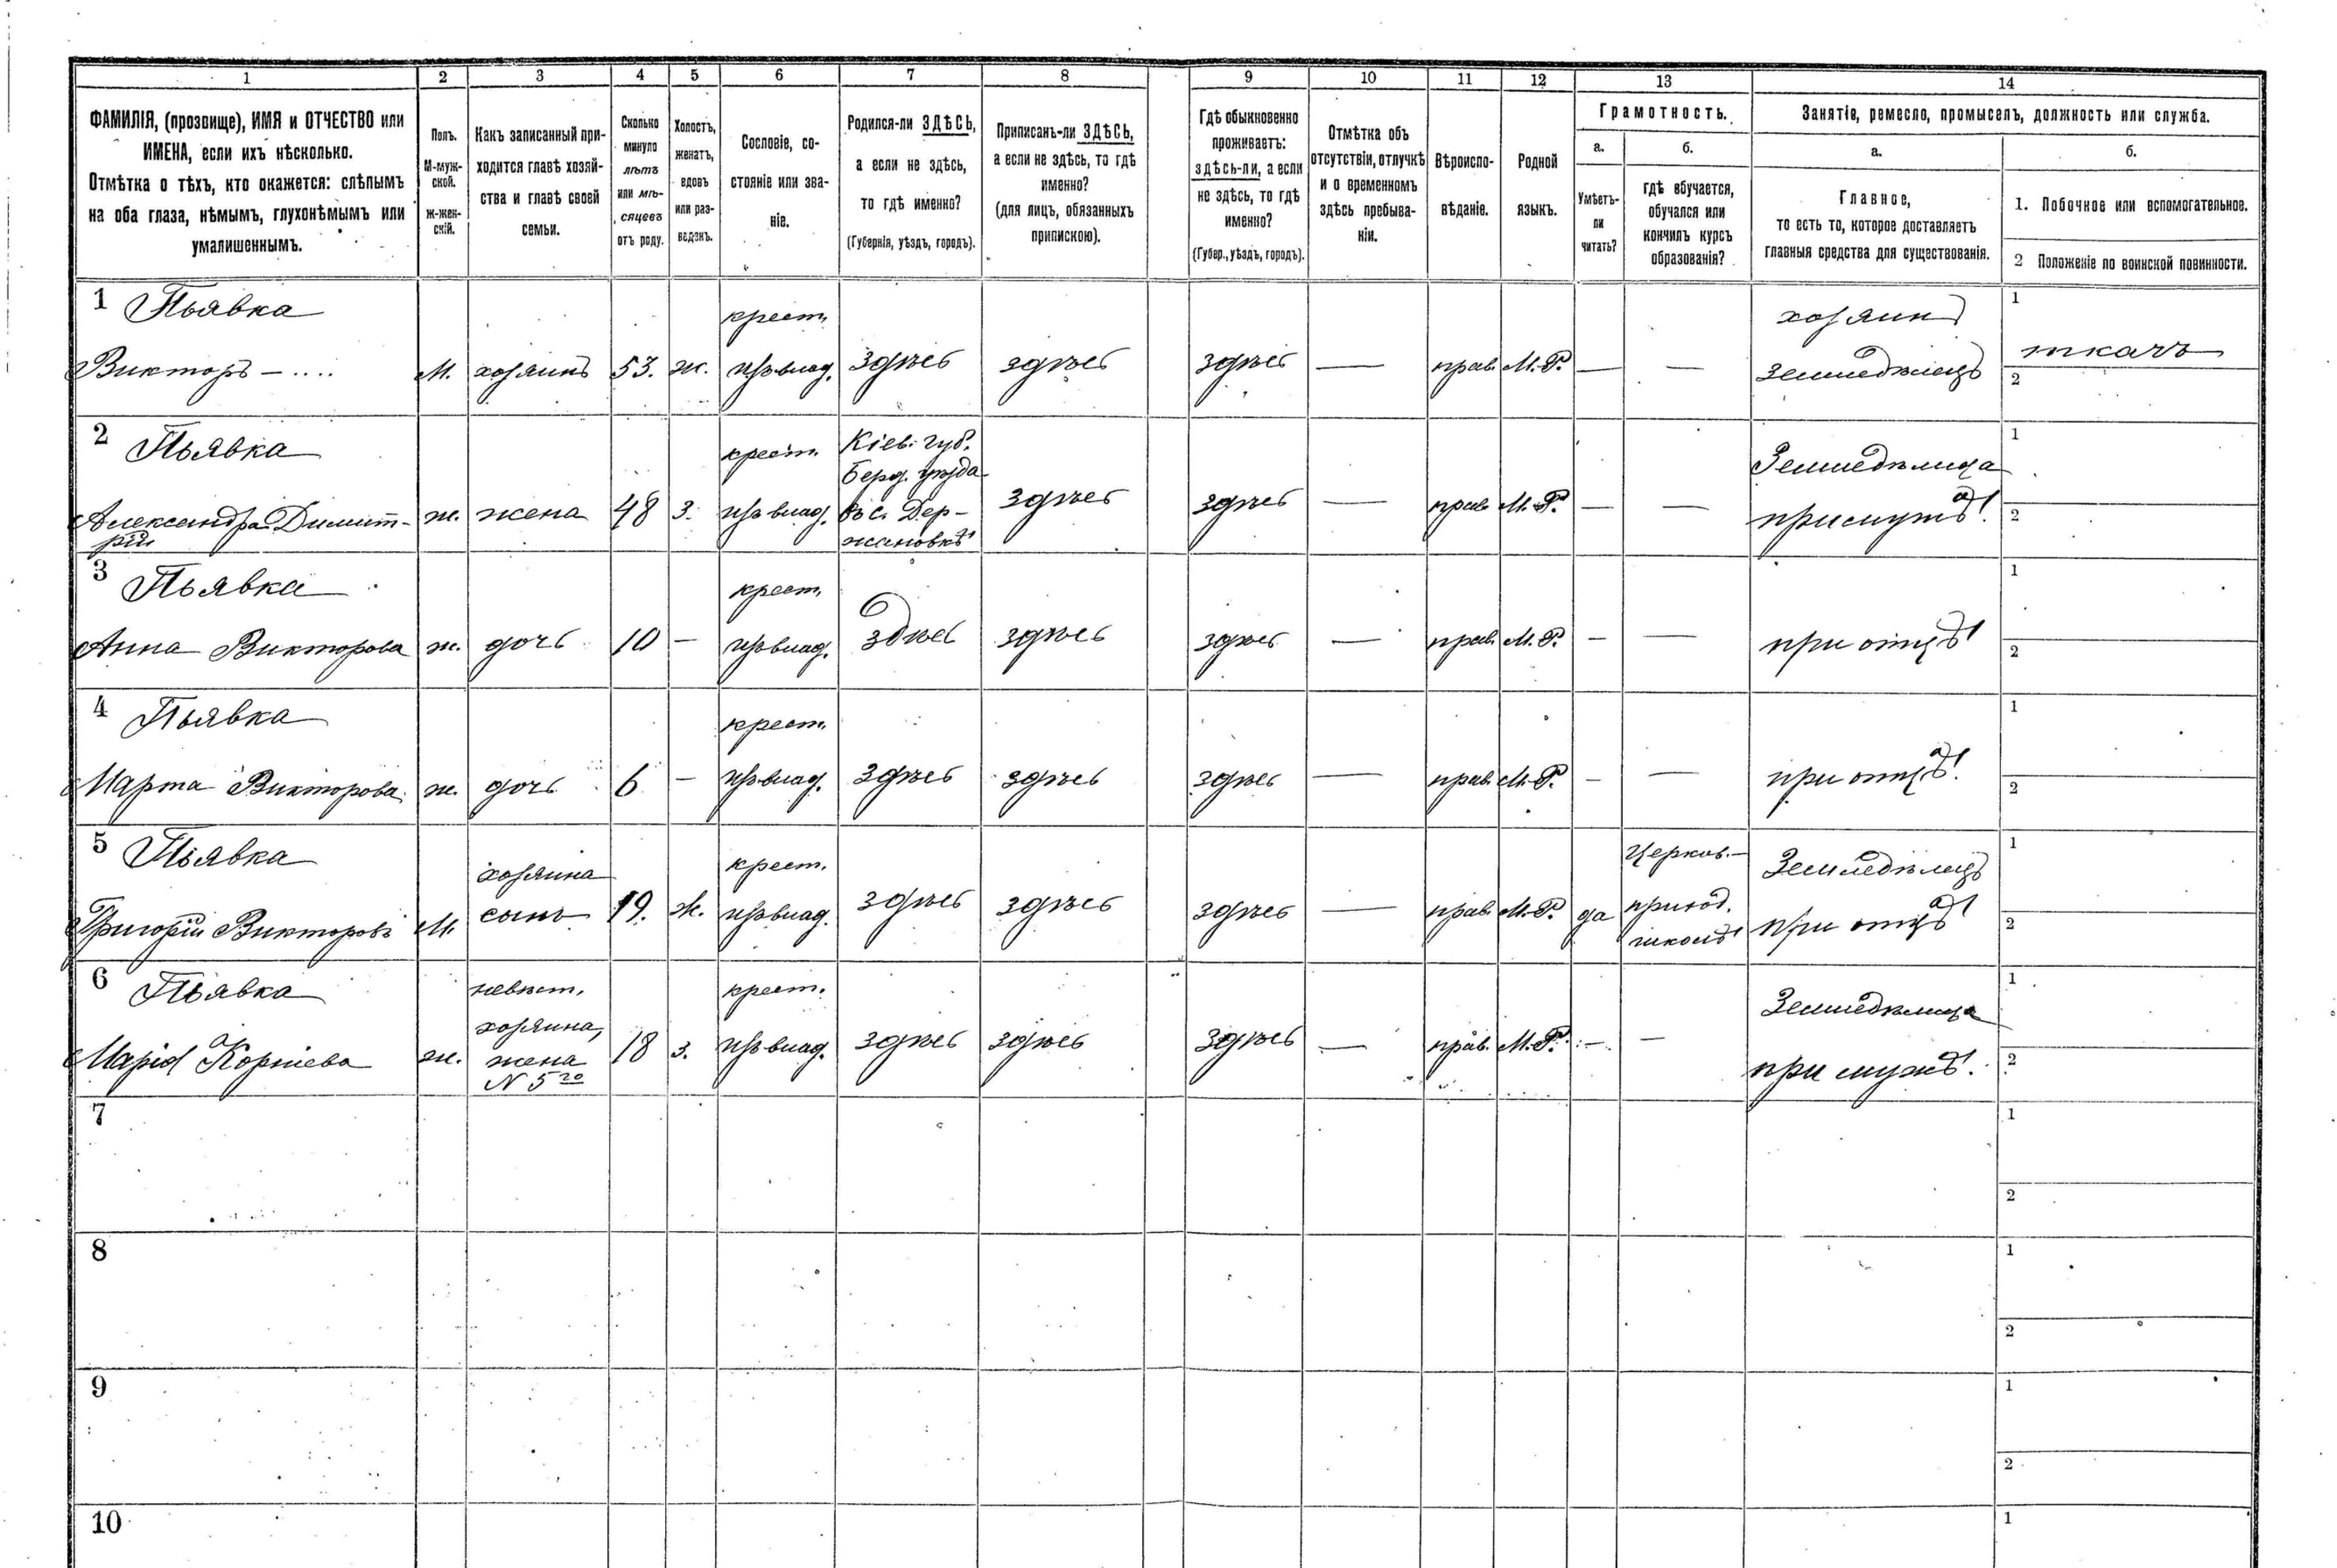 1 2 3 4 5 6 7 8 9 10 11 12 13 14
ФАМИЛІЯ, (прозвище), ИМЯ и ОТЧЕСТВО или
ИМЕНА, если ихъ нѣсколько.
Отмѣтка о тѣхъ, кто окажется: слѣпымъ
на оба глаза, нѣмымъ, глухонѣмымъ или
умалишеннымъ.
Полъ.
М-муж-
ской.
ж-жен-
скій.
Какъ записанный при-
ходится главѣ хозяй-
ства и главѣ своей
семьи.
Сколько
минуло
лѣтъ
или мѣ-
сяцевъ
отъ роду.
Холостъ,
женатъ,
вдовъ
или раз-
веденъ.
Сословіе, со-
стояніе или зва-
ніе.
Родился-ли ЗДѢСЬ,
а если не здѣсь,
то гдѣ именно?
(Губернія, уѣздъ, городъ).
Приписанъ-ли ЗДѢСЬ,
а если не здѣсь, то гдѣ
именно?
(для лицъ, обязанныхъ
припискою).
Гдѣ обыкновенно
проживаетъ:
здѣсь-ли, а если
не здѣсь, то гдѣ
именно?
(Губер., уѣздъ, городъ).
Отмѣтка объ
отсутствіи, отлучкѣ
и о временномъ
здѣсь пребыва-
ніи.
Вѣроиспо-
вѣданіе.
Родной
языкъ.
Грамотность.
а.
Умѣетъ-
ли
читать?
б.
гдѣ обучается,
обучался или
кончилъ курсъ
образованія?
Занятіе, ремесло, промыселъ, должность или служба.
а.
Главное,
то есть то, которое доставляетъ
главныя средства для существованія.
б.
1. Побочное или вспомогательное.
2 Положеніе по воинской повинности.
1 Пьявка крест. хозяин 1
Викторъ — .... М. хозяинъ 53. ж. здѣсь здѣсь здѣсь — прав. М.-Р. — — земледѣлецъ ткачъ
2
2 Пьявка крест. Кіев. губ. Земледѣлица 1
Берд. уѣзда
Александра Димит- ж. жена 48 з. въ с. Дер- здѣсь здѣсь — прав. М.-Р. — — при мужѣ. 2
рій жановкѣ
3 Пьявка крест. 1
Анна Викторова ж. дочь 10 — здѣсь здѣсь здѣсь — прав. М.-Р. — — при отцѣ 2
4 Пьявка крест. 1
Марта Викторова ж. дочь 6 — здѣсь здѣсь здѣсь — прав. М.-Р. — — при отцѣ. 2
5 Пьявка хозяина крест. Церков.- Земледѣлецъ 1
Григорій Викторовъ М. сынъ 19. ж. здѣсь здѣсь здѣсь — прав. М.-Р. да приход. при отцѣ 2
школѣ
6 Пьявка невѣст. крест. Земледѣлица 1
хозяина,
Марія Корніева ж. жена 18 з. здѣсь здѣсь здѣсь — прав. М.-Р. — — при мужѣ. 2
N 5го
7 1
2
8 1
2
9 1
2
10 1